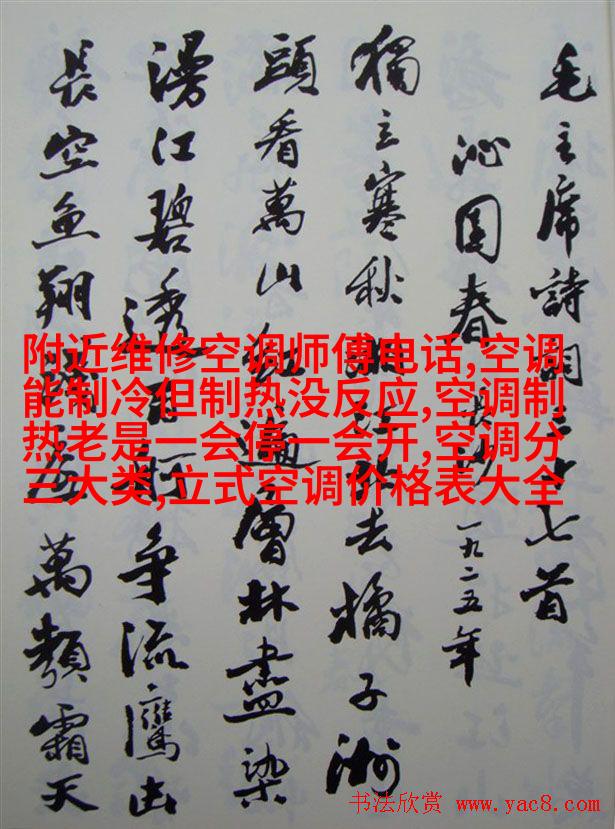 毛主席詩詞三十七首
沁园春 長沙 一九二五年
獨立寒秋湘江北去橘子洲
頭看萬山红遍層林盡染
漫江碧透百舸争流鷹击
長空魚翔淺底萬類霜天
附近维修空调师傅电话,空调
能制冷但制热没反应,空调制
热老是一会停一会开,空调分
三大类,立式空调价格表大全
书法欣赏 www.yac8.com